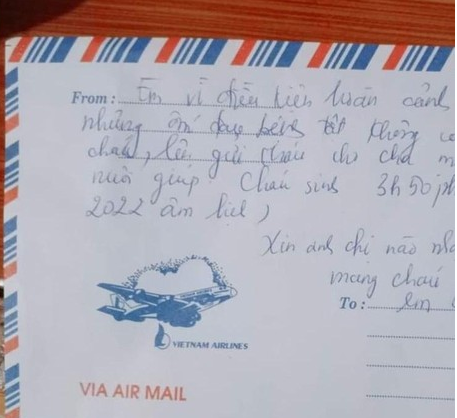 From: Em vì điều kiện hoàn cảnh
những ốm đau bệnh tật không
cháu, lên gửi cháu cho chá
nuôi giúp. Cháu sinh 3h50ph
2022 âm lịch)
Xin anh chị nào
mang cháu
To: em
VIETNAM AIRLINES
VIA AIR MAIL